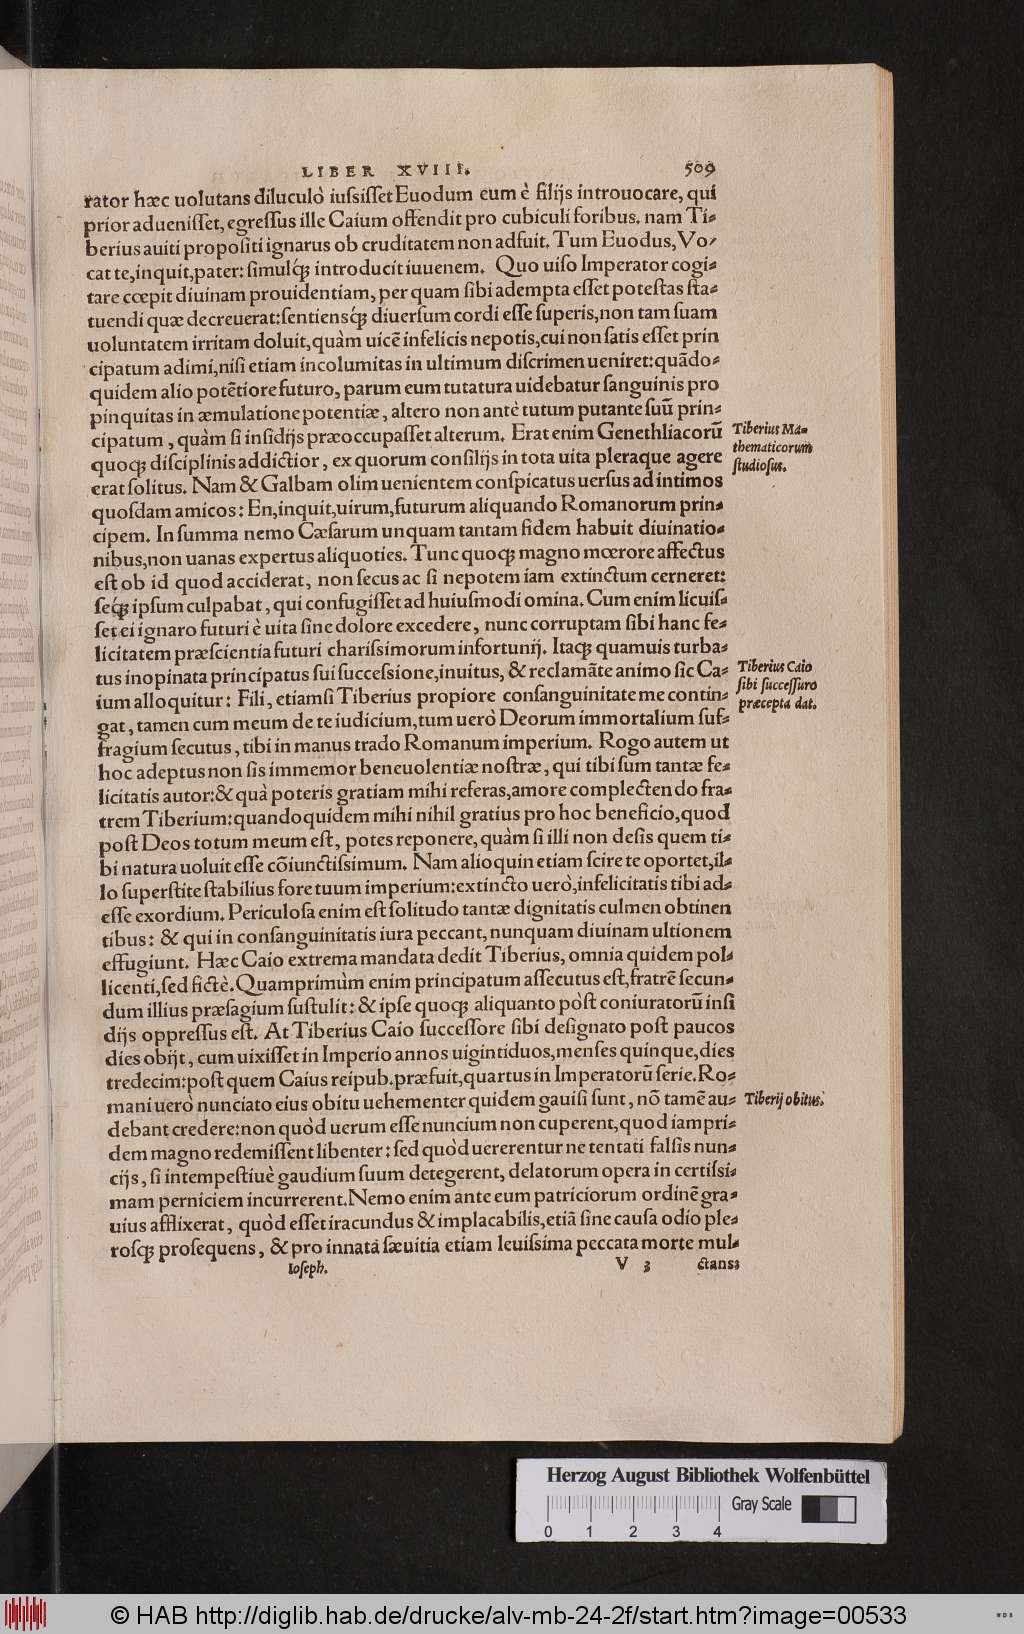 LIBER XVIII. 509
rator hæc uolutans diluculò iuſsiſſet Euodum eum è filijs introuocare, qui
prior adueniſſet, egreſſus ille Caium offendit pro cubiculi foribus. nam Ti⸗
berius auiti propoſiti ignarus ob cruditatem non adfuit. Tum Euodus, Vo⸗
cat te, inquit, pater: ſimulq́ꝫ introducit iuuenem. Quo uiſo Imperator cogi⸗
tare cœpit diuinam prouidentiam, per quam ſibi adempta eſſet poteſtas ſta⸗
tuendi quæ decreuerat: ſentiensq́ꝫ diuerſum cordi eſſe ſuperis, non tam ſuam
uoluntatem irritam doluit, quàm uicẽ infelicis nepotis, cui non ſatis eſſet prin
cipatum adimi, niſi etiam incolumitas in ultimum diſcrimen ueniret: quãdo⸗
quidem alio potẽtiore futuro, parum eum tutatura uidebatur ſanguinis pro
pinquitas in æmulatione potentiæ, altero non antè tutum putante ſuũ prin⸗
cipatum, quàm ſi inſidijs præoccupaſſet alterum. Erat enim Genethliacorũ
quoqꝫ diſciplinis addictior, ex quorum conſilijs in tota uita pleraque agere
erat ſolitus. Nam & Galbam olim uenientem conſpicatus uerſus ad intimos
quoſdam amicos: En, inquit, uirum, futurum aliquando Romanorum prin⸗
cipem. In ſumma nemo Cæſarum unquam tantam fidem habuit diuinatio⸗
nibus, non uanas expertus aliquoties. Tunc quoqꝫ magno mœrore affectus
eſt ob id quod acciderat, non ſecus ac ſi nepotem iam extinctum cerneret:
ſeq́ꝫ ipſum culpabat, qui confugiſſet ad huiuſmodi omina. Cum enim licuiſ⸗
ſet ei ignaro futuri è uita ſine dolore excedere, nunc corruptam ſibi hanc fe⸗
licitatem præſcientia futuri chariſsimorum infortunij. Itaqꝫ quamuis turba⸗
tus inopinata principatus ſui ſucceſsione, inuitus, & reclamãte animo ſic Ca⸗
ium alloquitur: Fili, etiamſi Tiberius propiore conſanguinitate me contin⸗
gat, tamen cum meum de te iudicium, tum uerò Deorum immortalium ſuf⸗
fragium ſecutus, tibi in manus trado Romanum imperium. Rogo autem ut
hoc adeptus non ſis immemor beneuolentiæ noſtræ, qui tibi ſum tantæ fe⸗
licitatis autor: & quà poteris gratiam mihi referas, amore complectendo fra⸗
trem Tiberium: quandoquidem mihi nihil gratius pro hoc beneficio, quod
poſt Deos totum meum eſt, potes reponere, quàm ſi illi non deſis quem ti⸗
bi natura uoluit eſſe cõiunctiſsimum. Nam alioquin etiam ſcire te oportet, il⸗
lo ſuperſtite ſtabilius fore tuum imperium: extincto uerò, infelicitatis tibi ad⸗
eſſe exordium. Periculoſa enim eſt ſolitudo tantæ dignitatis culmen obtinen
tibus: & qui in conſanguinitatis iura peccant, nunquam diuinam ultionem
effugiunt. Hæc Caio extrema mandata dedit Tiberius, omnia quidem pol⸗
licenti, ſed fictè. Quamprimùm enim principatum aſſecutus eſt, fratrẽ ſecun⸗
dum illius præſagium ſuſtulit: & ipſe quoqꝫ aliquanto pòſt coniuratorũ inſi
dijs oppreſſus eſt. At Tiberius Caio ſucceſſore ſibi deſignato poſt paucos
dies obijt, cum uixiſſet in Imperio annos uigintiduos, menſes quinque, dies
tredecim: poſt quem Caius reipub. præfuit, quartus in Imperatorũ ſerie. Ro⸗
mani uerò nunciato eius obitu uehementer quidem gauiſi ſunt, nõ tamẽ au⸗
debant credere: non quòd uerum eſſe nuncium non cuperent, quod iampri⸗
dem magno redemiſſent libenter: ſed quòd uererentur ne tentati falſis nun⸗
cijs, ſi intempeſtiuè gaudium ſuum detegerent, delatorum opera in certiſsi⸗
mam perniciem incurrerent. Nemo enim ante eum patriciorum ordinẽ gra⸗
uius afflixerat, quòd eſſet iracundus & implacabilis, etiã ſine cauſa odio ple⸗
roſqꝫ proſequens, & pro innata ſæuitia etiam leuiſsima peccata morte mul⸗
Ioſeph. V 3 ctans:
Tiberius Ma⸗
thematicorum
ſtudioſus.
Tiberius Caio
ſibi ſucceſſuro
præcepta dat.
Tiberij obitus.
Herzog August Bibliothek Wolfenbüttel
Gray Scale
0 1 2 3 4
© HAB http://diglib.hab.de/drucke/alv-mb-24-2f/start.htm?image=00533